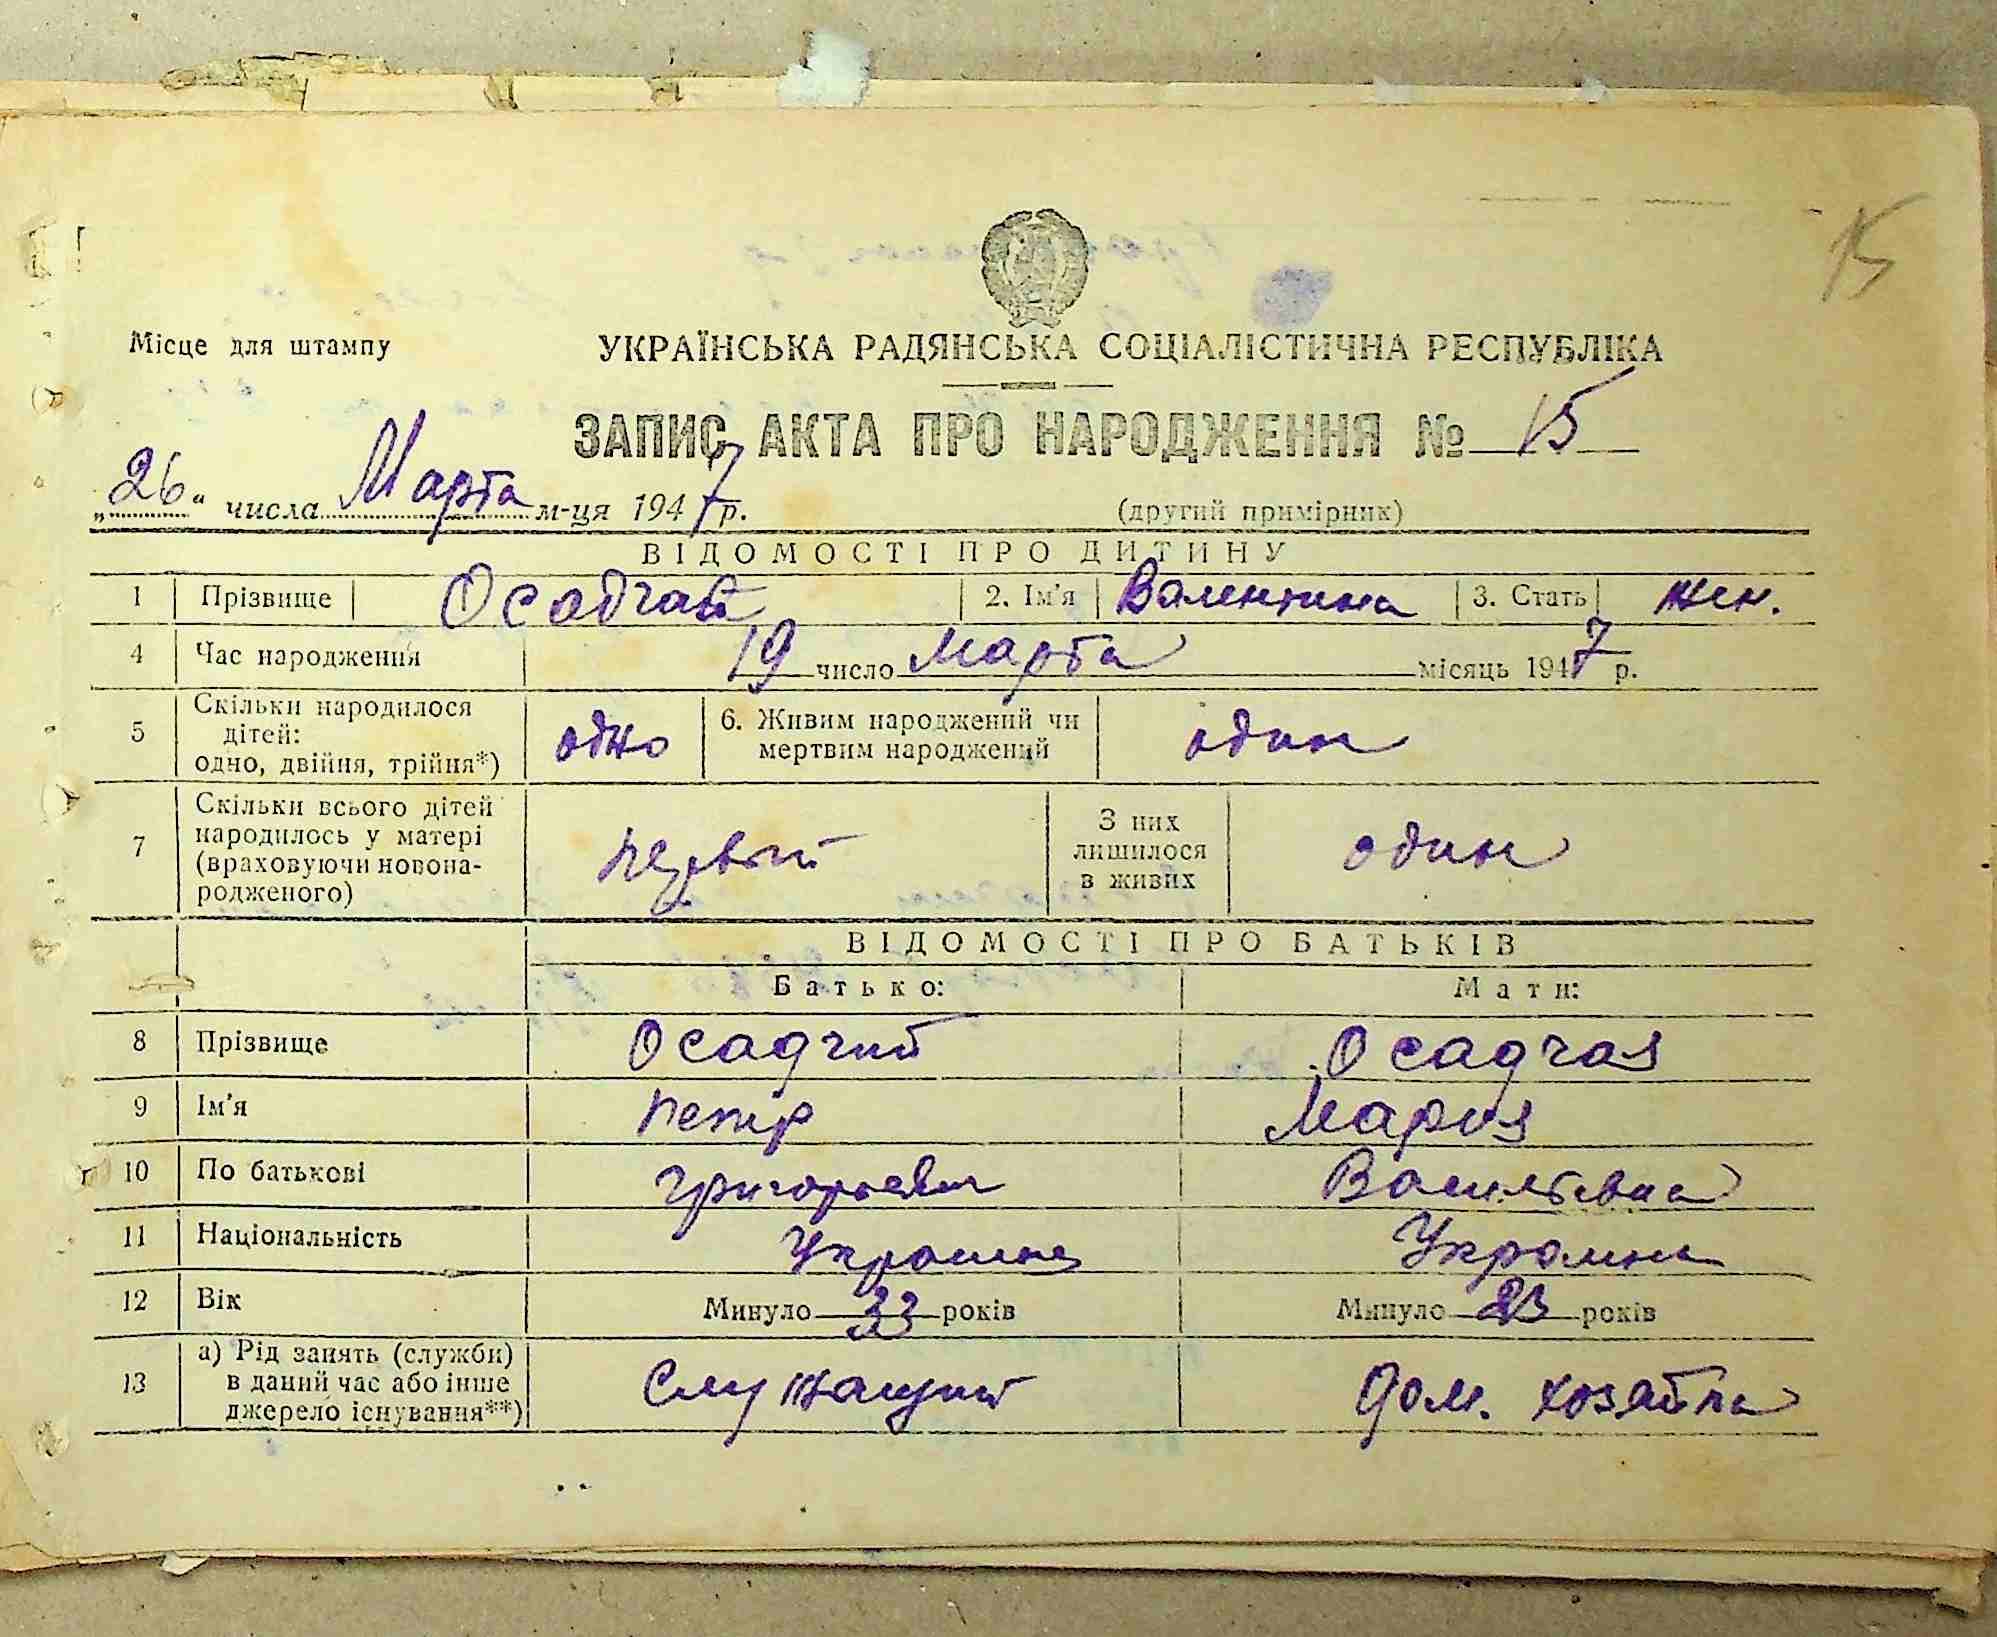 15
Місце для штампу
УКРАЇНСЬКА РАДЯНСЬКА СОЦІАЛІСТИЧНА РЕСПУБЛІКА
ЗАПИС АКТА ПРО НАРОДЖЕННЯ № 15
„26“ числа Марта м-ця 1947 р.
(другий примірник)
ВІДОМОСТІ ПРО ДИТИНУ
1 Прізвище Осадчай 2. Ім'я Валентина 3. Стать жен.
4 Час народження 19 число марта місяць 1947 р.
5 Скільки народилося дітей: одно, двійня, трійня*) одно 6. Живим народжений чи мертвим народжений один
7 Скільки всього дітей народилось у матері (враховуючи новонародженого) первый З них лишилося в живих один
ВІДОМОСТІ ПРО БАТЬКІВ
Батько: Мати:
8 Прізвище Осадчий Осадчая
9 Ім'я Петр Мария
10 По батькові Григорьевич Васильевна
11 Національність Украинец Украинка
12 Вік Минуло 33 років Минуло 23 років
13 а) Рід занять (служби) в даний час або інше джерело існування**) Служащий дом. хозяйка